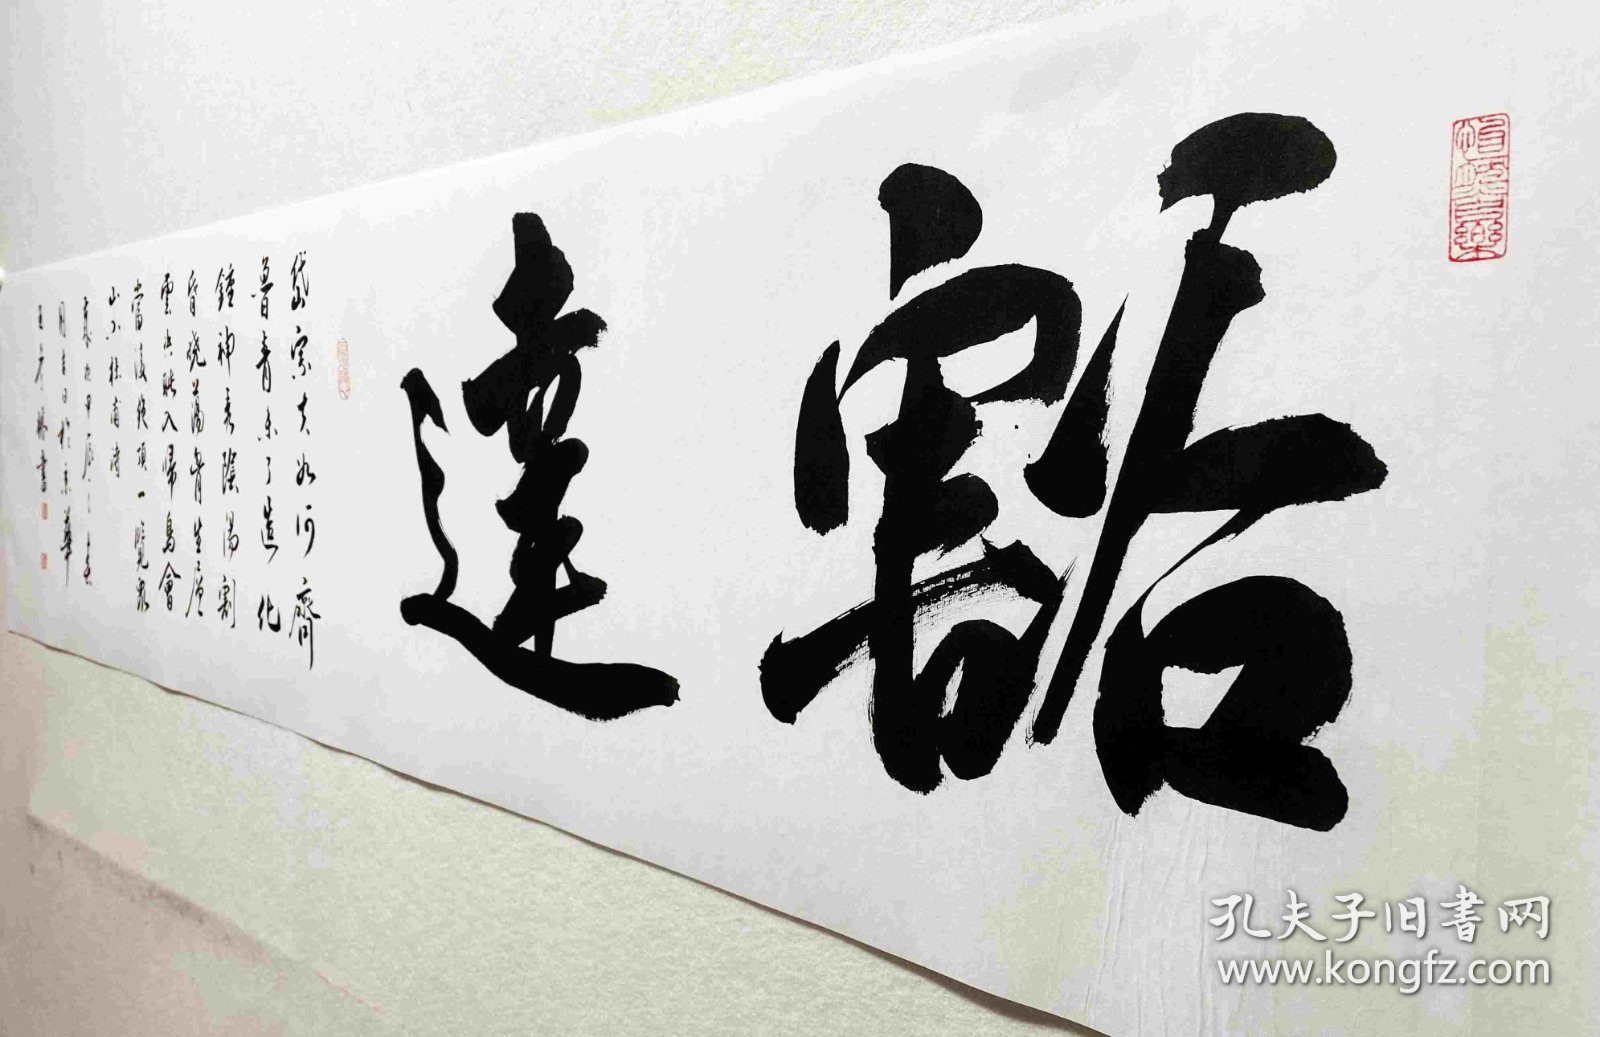 豁達
岱宗夫如何齊
魯青未了造化
鍾神秀陰陽割
昏曉蕩胷生層
雲決眥入歸鳥會
當凌絕頂一覽眾
山小杜甫詩
歲次甲辰之春
月吉日於京華
書
孔夫子旧書网
www.kongfz.com